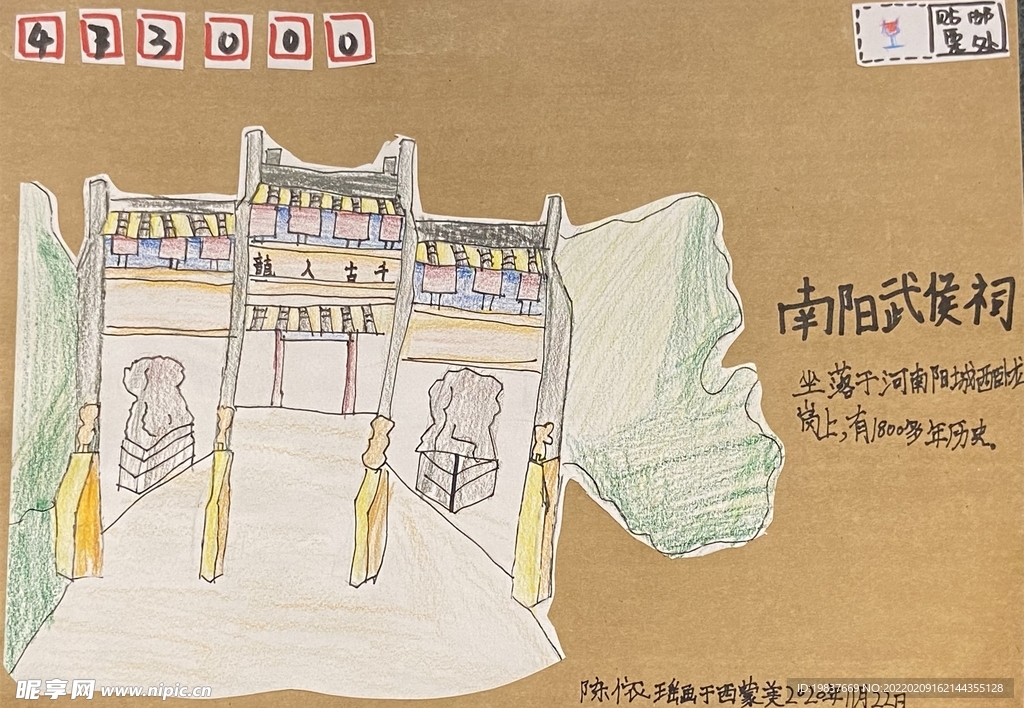 4 7 3 0 0 0
贴邮
票处
龍人古千
南阳武侯祠
坐落于河南阳城西卧龙
岗上,有1800多年历史。
陈依瑶画于西蒙美2020年11月22日
昵享网 www.nipic.cn
ID:19837669 NO:20220209162144355128